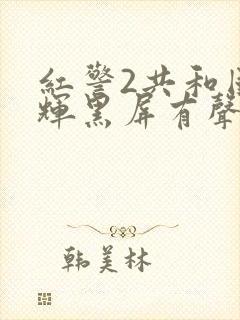 紅警2共和
輝黑屏有聲
韩美林